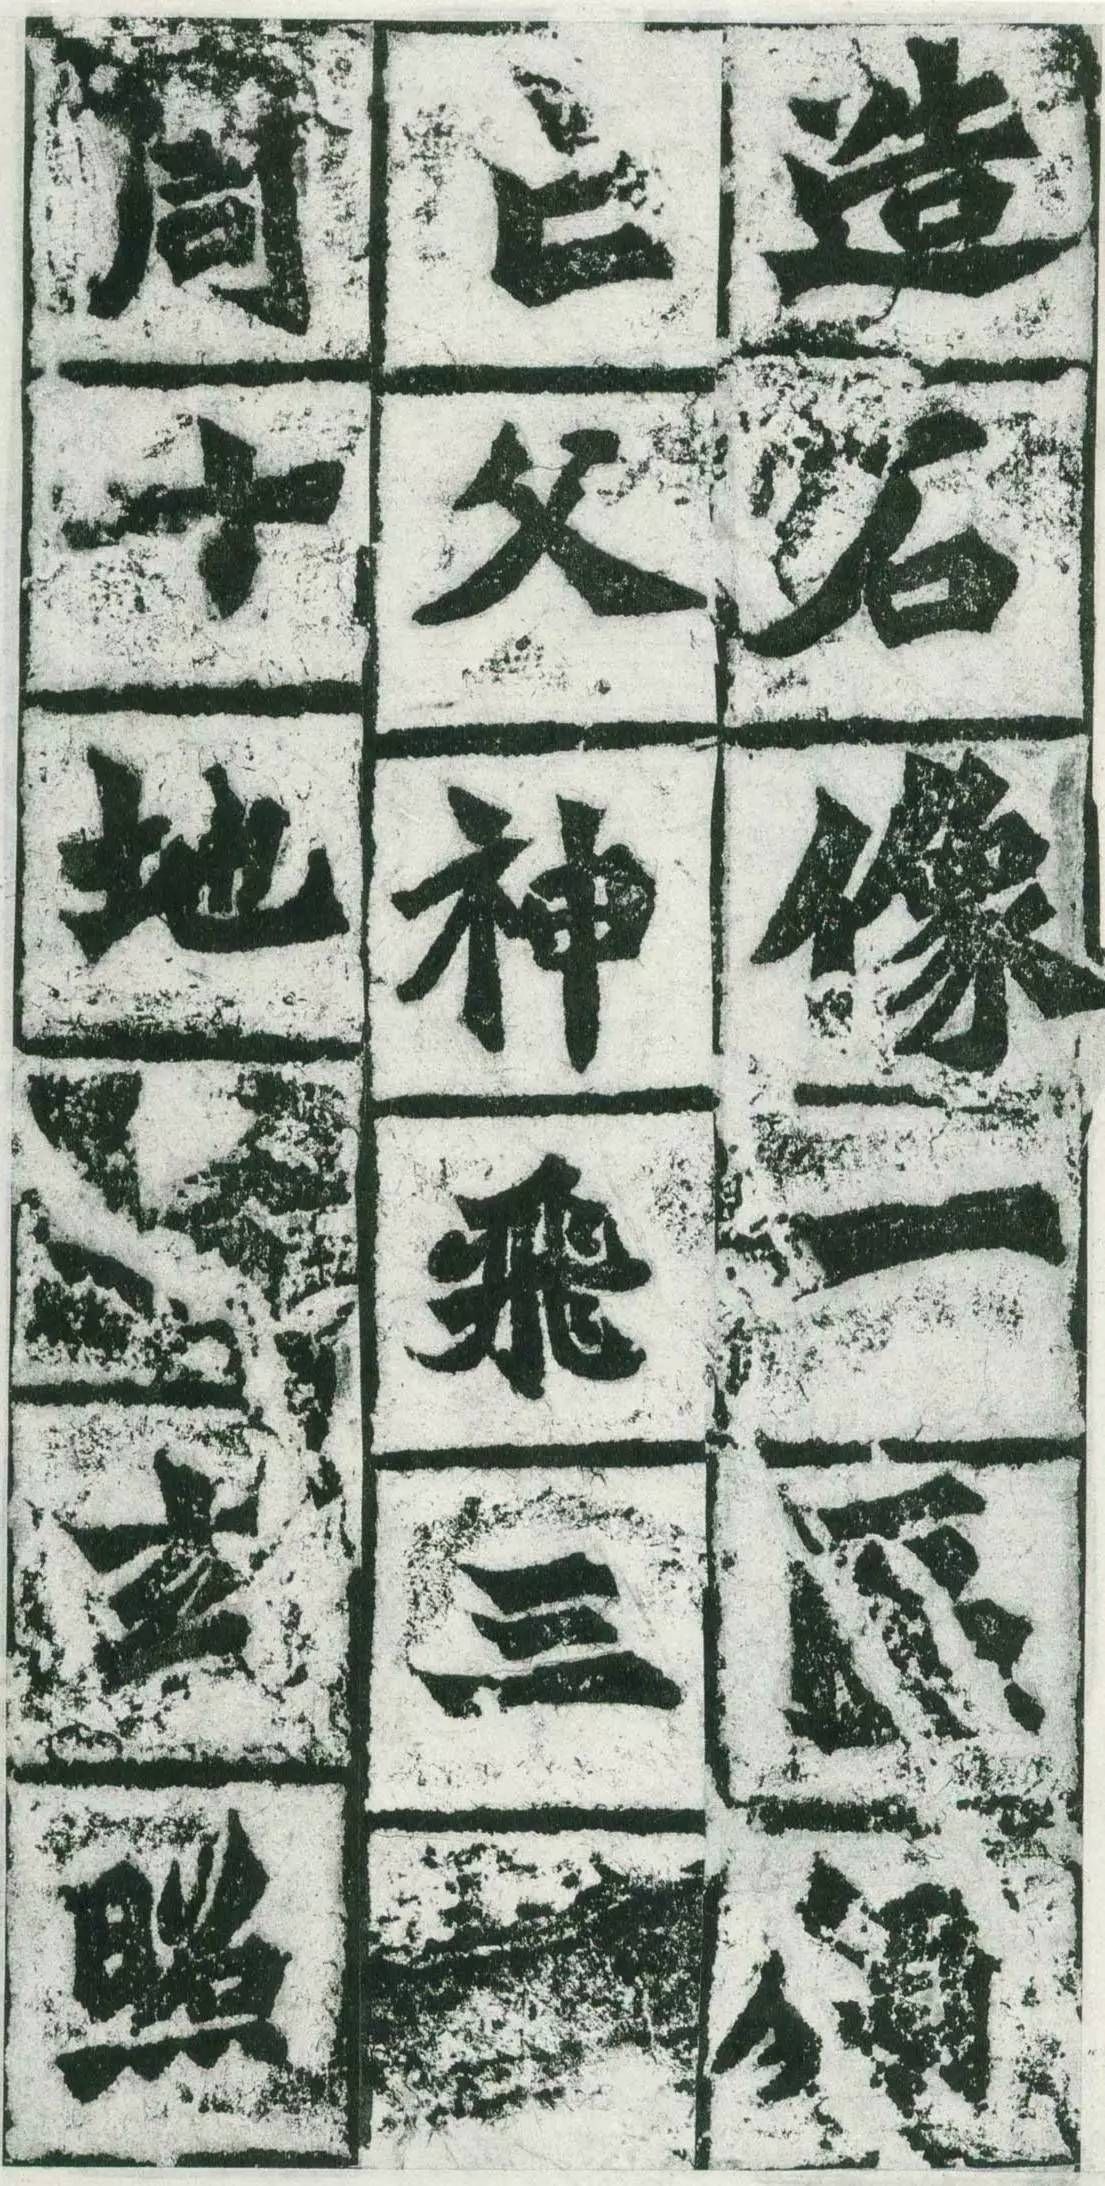 造石像一區
亡父神飛三
周十地
玄照